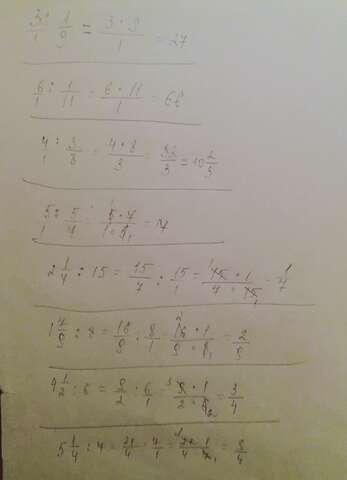 3/1 : 1/9 = 3·9/1 = 27
6/1 : 1/11 = 6·11/1 = 66
4/1 : 3/8 = 4·8/3 = 32/3 = 10 2/3
5/1 : 5/7 = 5·7/1·5₁ = 7
2 1/4 : 15 = 15/7 : 15/1 = 15·1/7·15₁ = 1/7
1 7/9 : 8 = 16/9 : 8/1 = 16·1/9·8₁ = 2/9
4 1/2 : 6 = 9/2 : 6/1 = 9·1/2·6₂ = 3/4
5 1/4 : 7 = 21/4 : 7/1 = 21·1/4·7₁ = 3/4